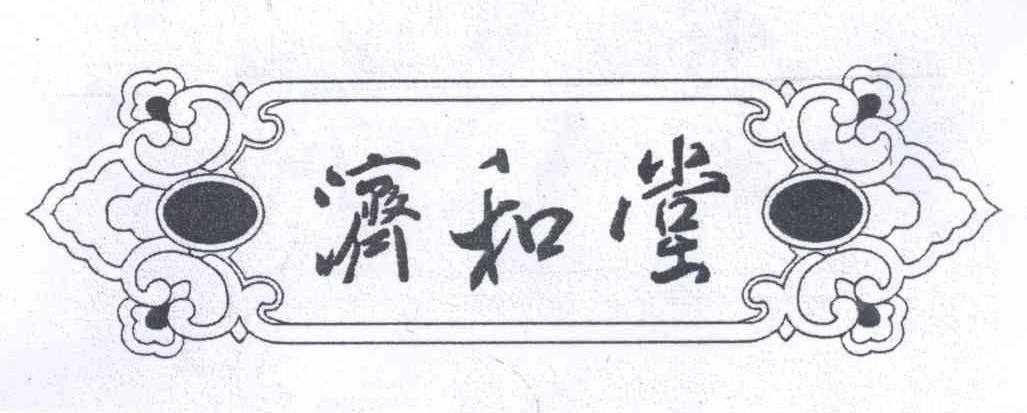 濟和堂